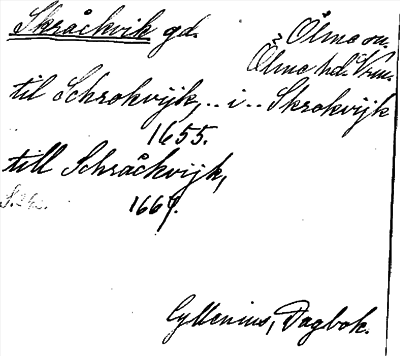 Skråckvik gd. Ölme sn.
Ölme hd. Vrm.
til Schrokvijk, .. i .. Skrokvijk
1655.
till Schråckvijk,
1667.
Gyllenius, Dagbok.